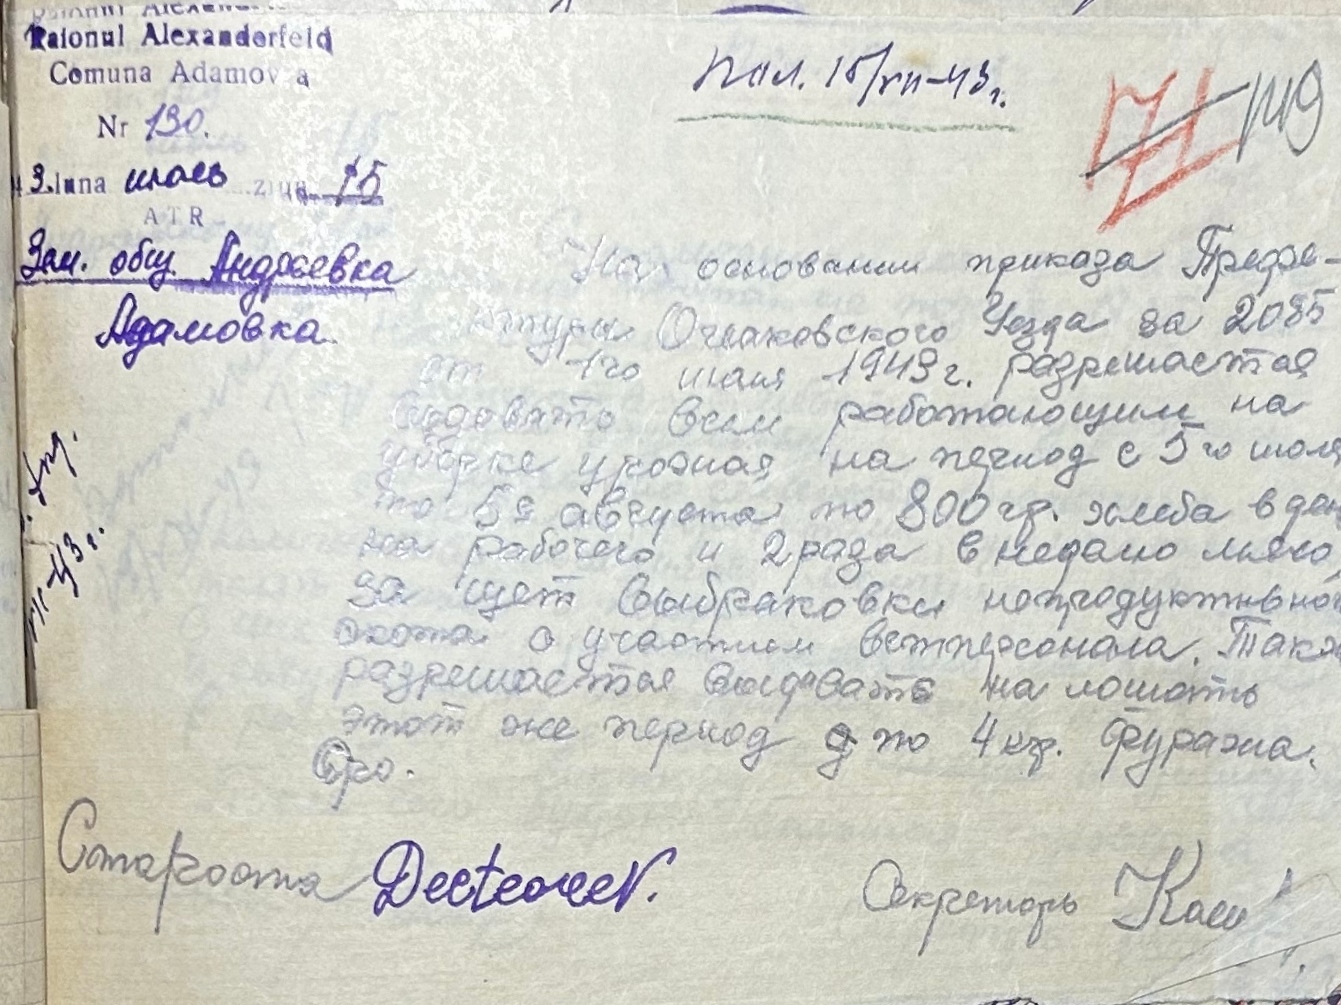 Raionul Alexanderfeld
Comuna Adamovca
Nr 130.
3. Luna июль Ziua 15
Зам. общ. Андреевка
Адамовка.
Пол. 15/VII-43 г.
71
149
На основании приказа Префе-
ктуры Очаковского Уезда за 2085
от 1го июля 1943 г. разрешается
выдавать всем работающим на
уборке урожая на период с 5го июля
по 5е августа по 800 гр. хлеба в ден
на рабочего и 2 раза в неделю мясо,
за щет выбраковки непродуктивно
скота с участием ветперсонала. Такж
разрешается выдавать на лошать
этот же период по 4 кгр. фуража.
VII-43 г.
Староста
Секретарь